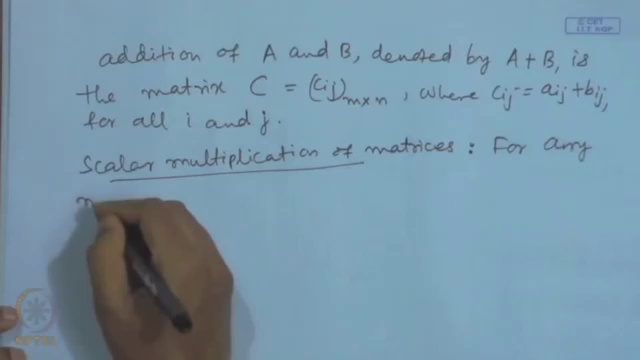 © CET
I.I.T. KGP
addition of A and B, denoted by A + B, is
the matrix C = (cij)m×n, where cij = aij + bij,
for all i and j.
Scalar multiplication of matrices : For any
NPTEL